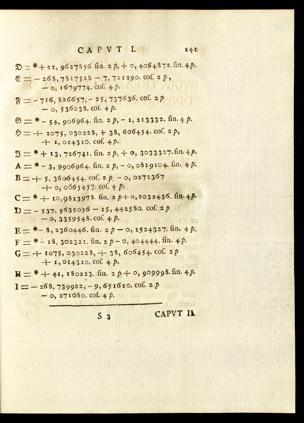 CAPVT I. 141
𝔇 = * + 21, 9627856 sin. 2 p, + 0, 4064872. sin. 4 p.
𝔈 = − 268, 7817528 − 7, 721290. cos. 2 p,
− 0, 1679774. cos. 4 p.
𝔉 = − 716, 826657, − 25, 737636. cos. 2 p
− 0, 536038. cos. 4 p.
𝔊 = * − 54, 906964. sin. 2 p, − 1, 213332. sin. 4 p.
ℌ = + 1075, 030228, + 38, 606454. cos. 2 p,
+ 1, 014310. cos. 4 p.
ℑ = * + 13, 726741. sin. 2 p, + 0, 3033327. sin. 4 p.
A = * − 3, 9906964. sin. 2 p, − 0, 0819104. sin. 4 p.
B = + 5, 3606454. cos. 2 p, − 0, 0272367
+ 0, 0665457. cos. 4 p.
C = * + 10, 9813978. sin. 2 p + 0, 2032436. sin. 4 p.
D = − 537, 5635056 − 15, 442580. cos. 2 p
− 0, 3359548. cos. 4 p.
E = * − 8, 2360446. sin. 2 p − 0, 1524327. sin. 4 p.
F = * − 18, 302321. sin. 2 p − 0, 404444. sin. 4 p.
G = + 1075, 030228, + 38, 606454. cos. 2 p
+ 1, 014310. cos. 4 p.
H = * + 41, 180223. sin. 2 p + 0, 909998. sin. 4 p.
I = − 268, 739922, − 9, 651610. cos. 2 p
− 0, 271080. cos. 4 p.
S 3 CAPVT II.